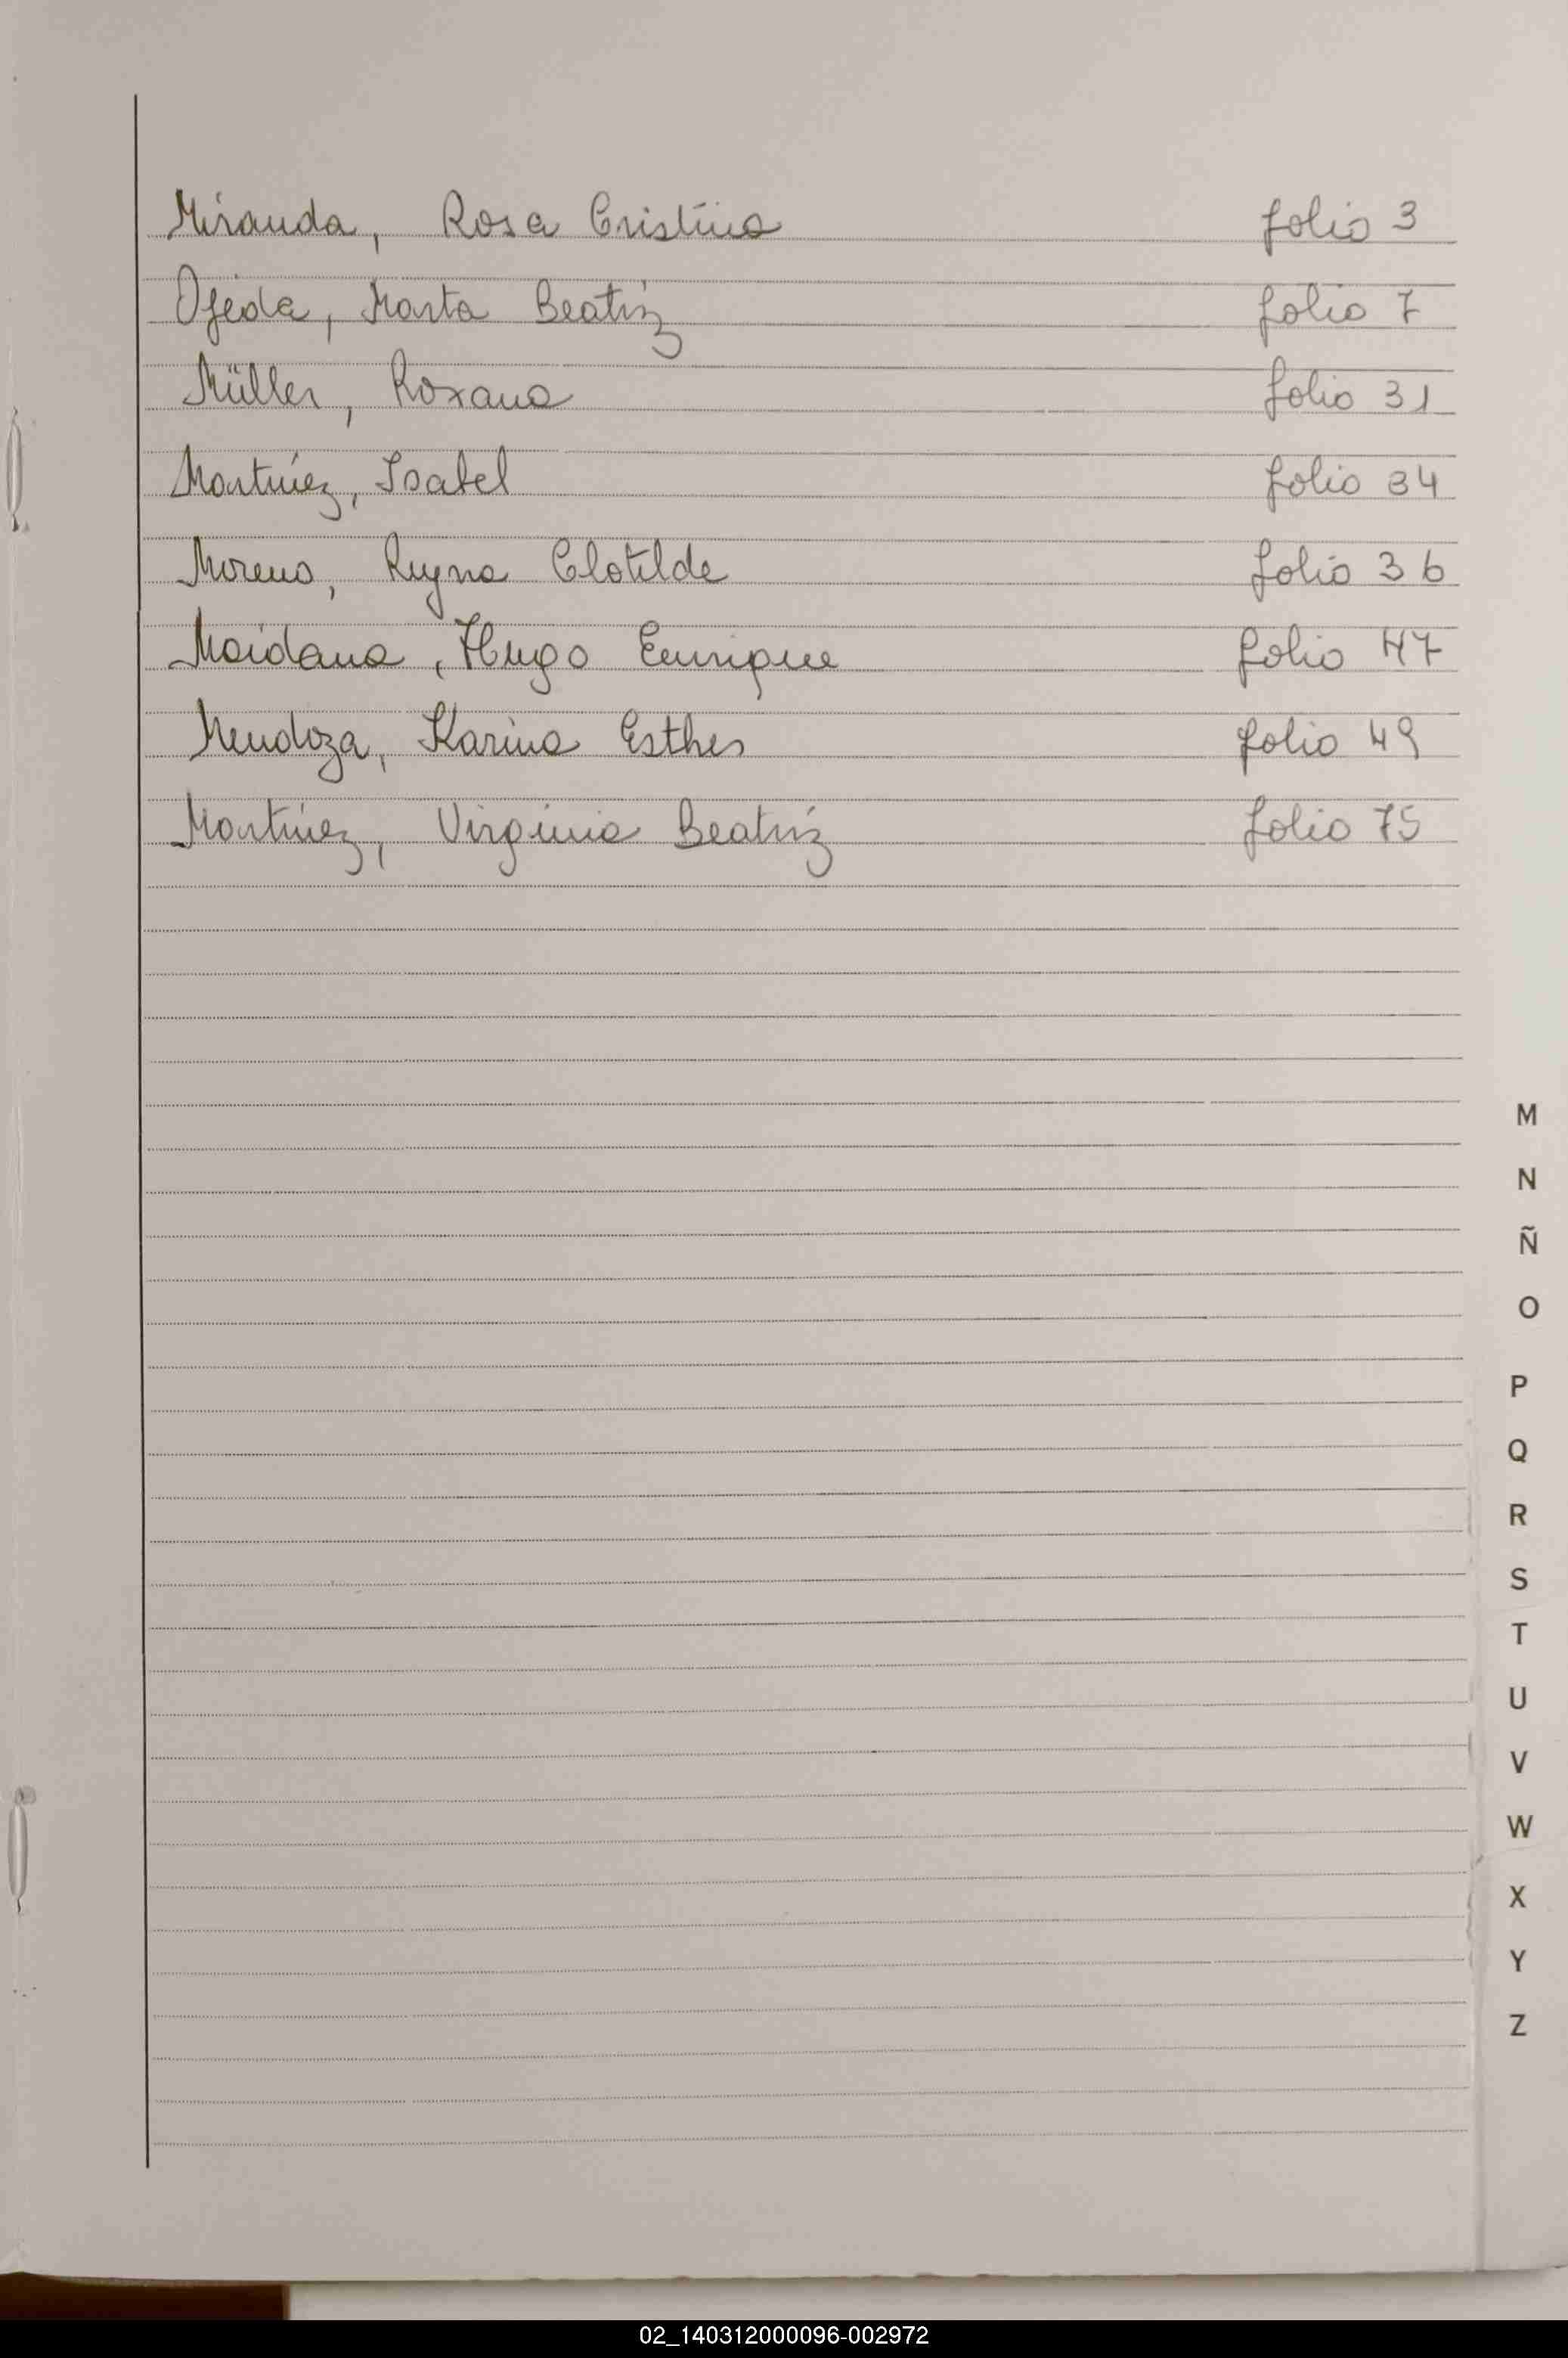 Miranda, Rosa Cristina folio 3
Ojeda, Marta Beatriz folio 7
Müller, Roxana folio 31
Martínez, Isabel folio 34
Moreno, Reyna Clotilde folio 36
Maidana, Hugo Enrique folio 47
Mendoza, Karina Esther folio 49
Martínez, Virginia Beatriz folio 75
M
N
Ñ
O
P
Q
R
S
T
U
V
W
X
Y
Z
02_140312000096-002972